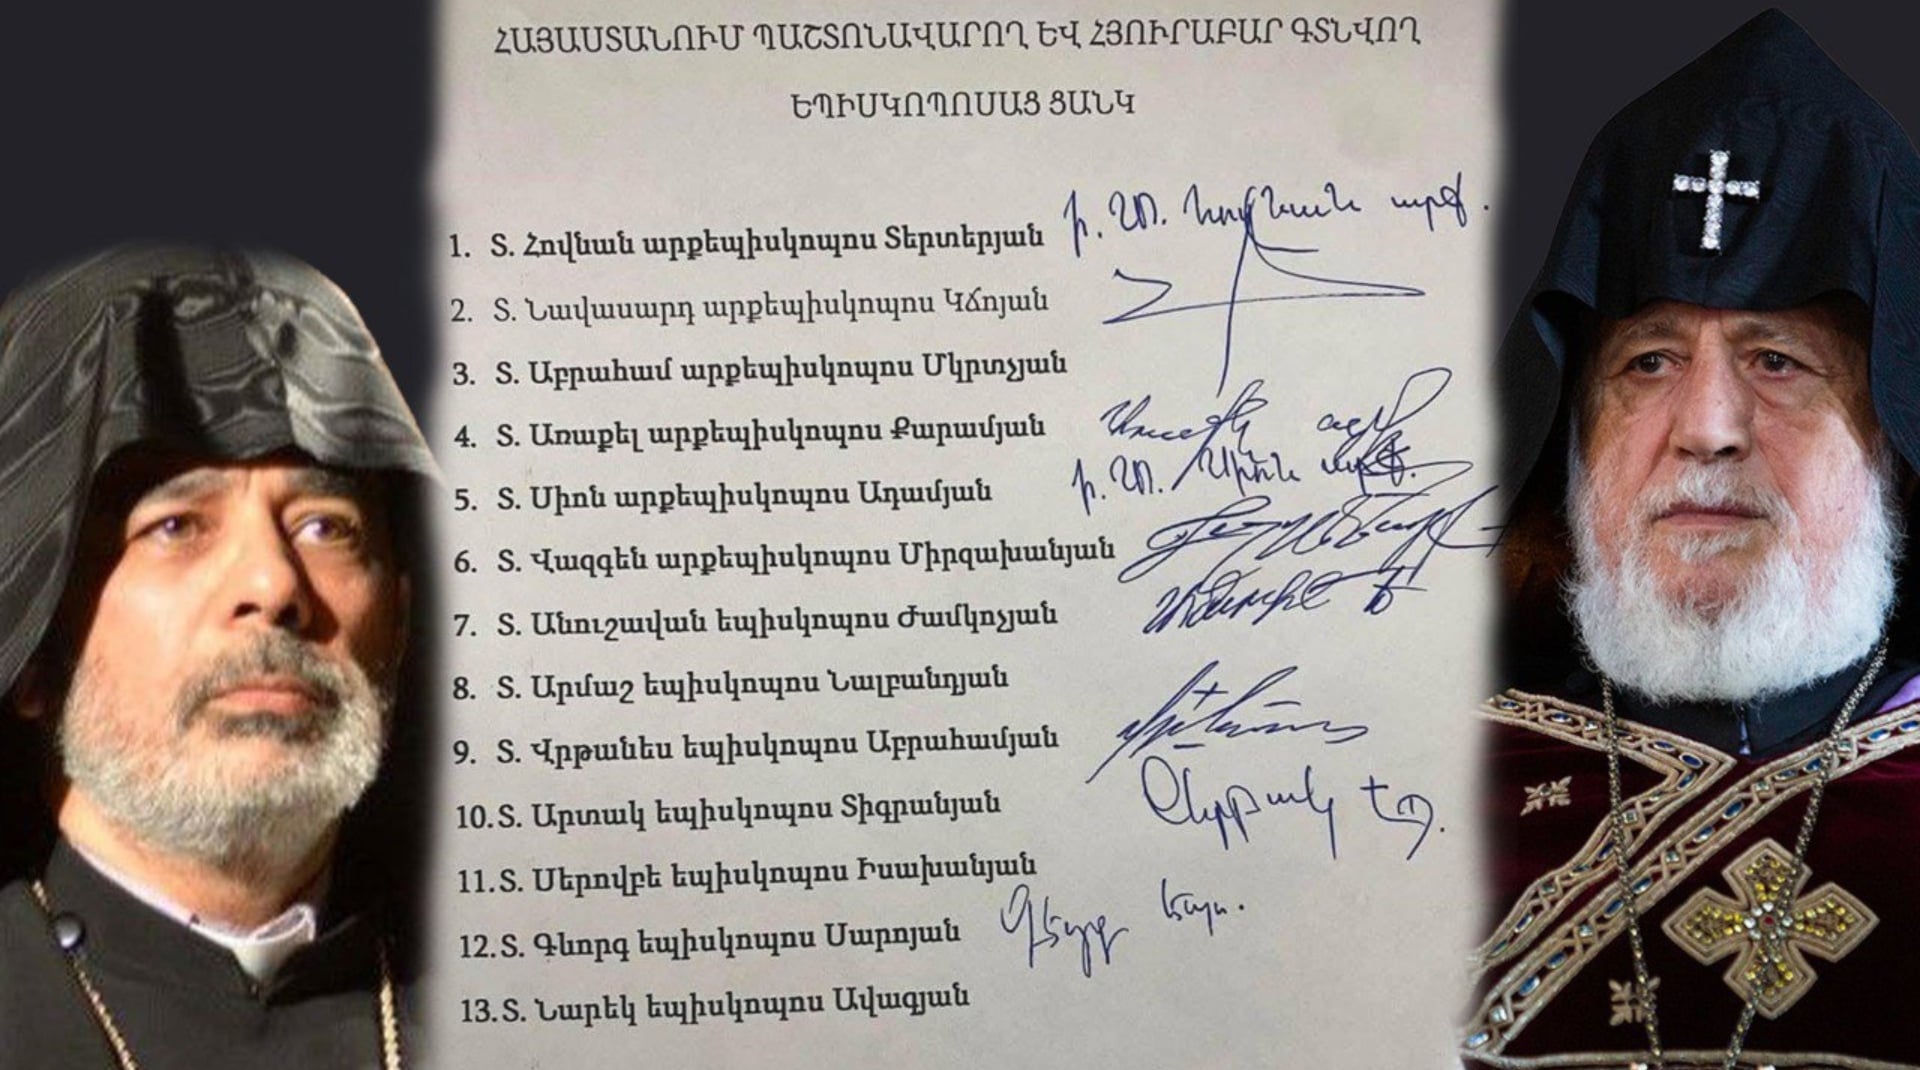 ՀԱՅԱՍՏԱՆՈՒՄ ՊԱՇՏՈՆԱՎԱՐՈՂ ԵՎ ՀՅՈՒՐԱԲԱՐ ԳՏՆՎՈՂ
ԵՊԻՍԿՈՊՈՍԱՑ ՑԱՆԿ
1. Տ. Հովնան արքեպիսկոպոս Տերտերյան
2. Տ. Նավասարդ արքեպիսկոպոս Կճոյան
3. Տ. Աբրահամ արքեպիսկոպոս Մկրտչյան
4. Տ. Առաքել արքեպիսկոպոս Քարամյան
5. Տ. Սիոն արքեպիսկոպոս Ադամյան
6. Տ. Վազգեն արքեպիսկոպոս Միրզախանյան
7. Տ. Անուշավան եպիսկոպոս Ժամկոչյան
8. Տ. Արմաշ եպիսկոպոս Նալբանդյան
9. Տ. Վրթանես եպիսկոպոս Աբրահամյան
10. Տ. Արտակ եպիսկոպոս Տիգրանյան
11. Տ. Սերովբե եպիսկոպոս Իսախանյան
12. Տ. Գևորգ եպիսկոպոս Սարոյան
13. Տ. Նարեկ եպիսկոպոս Ավագյան